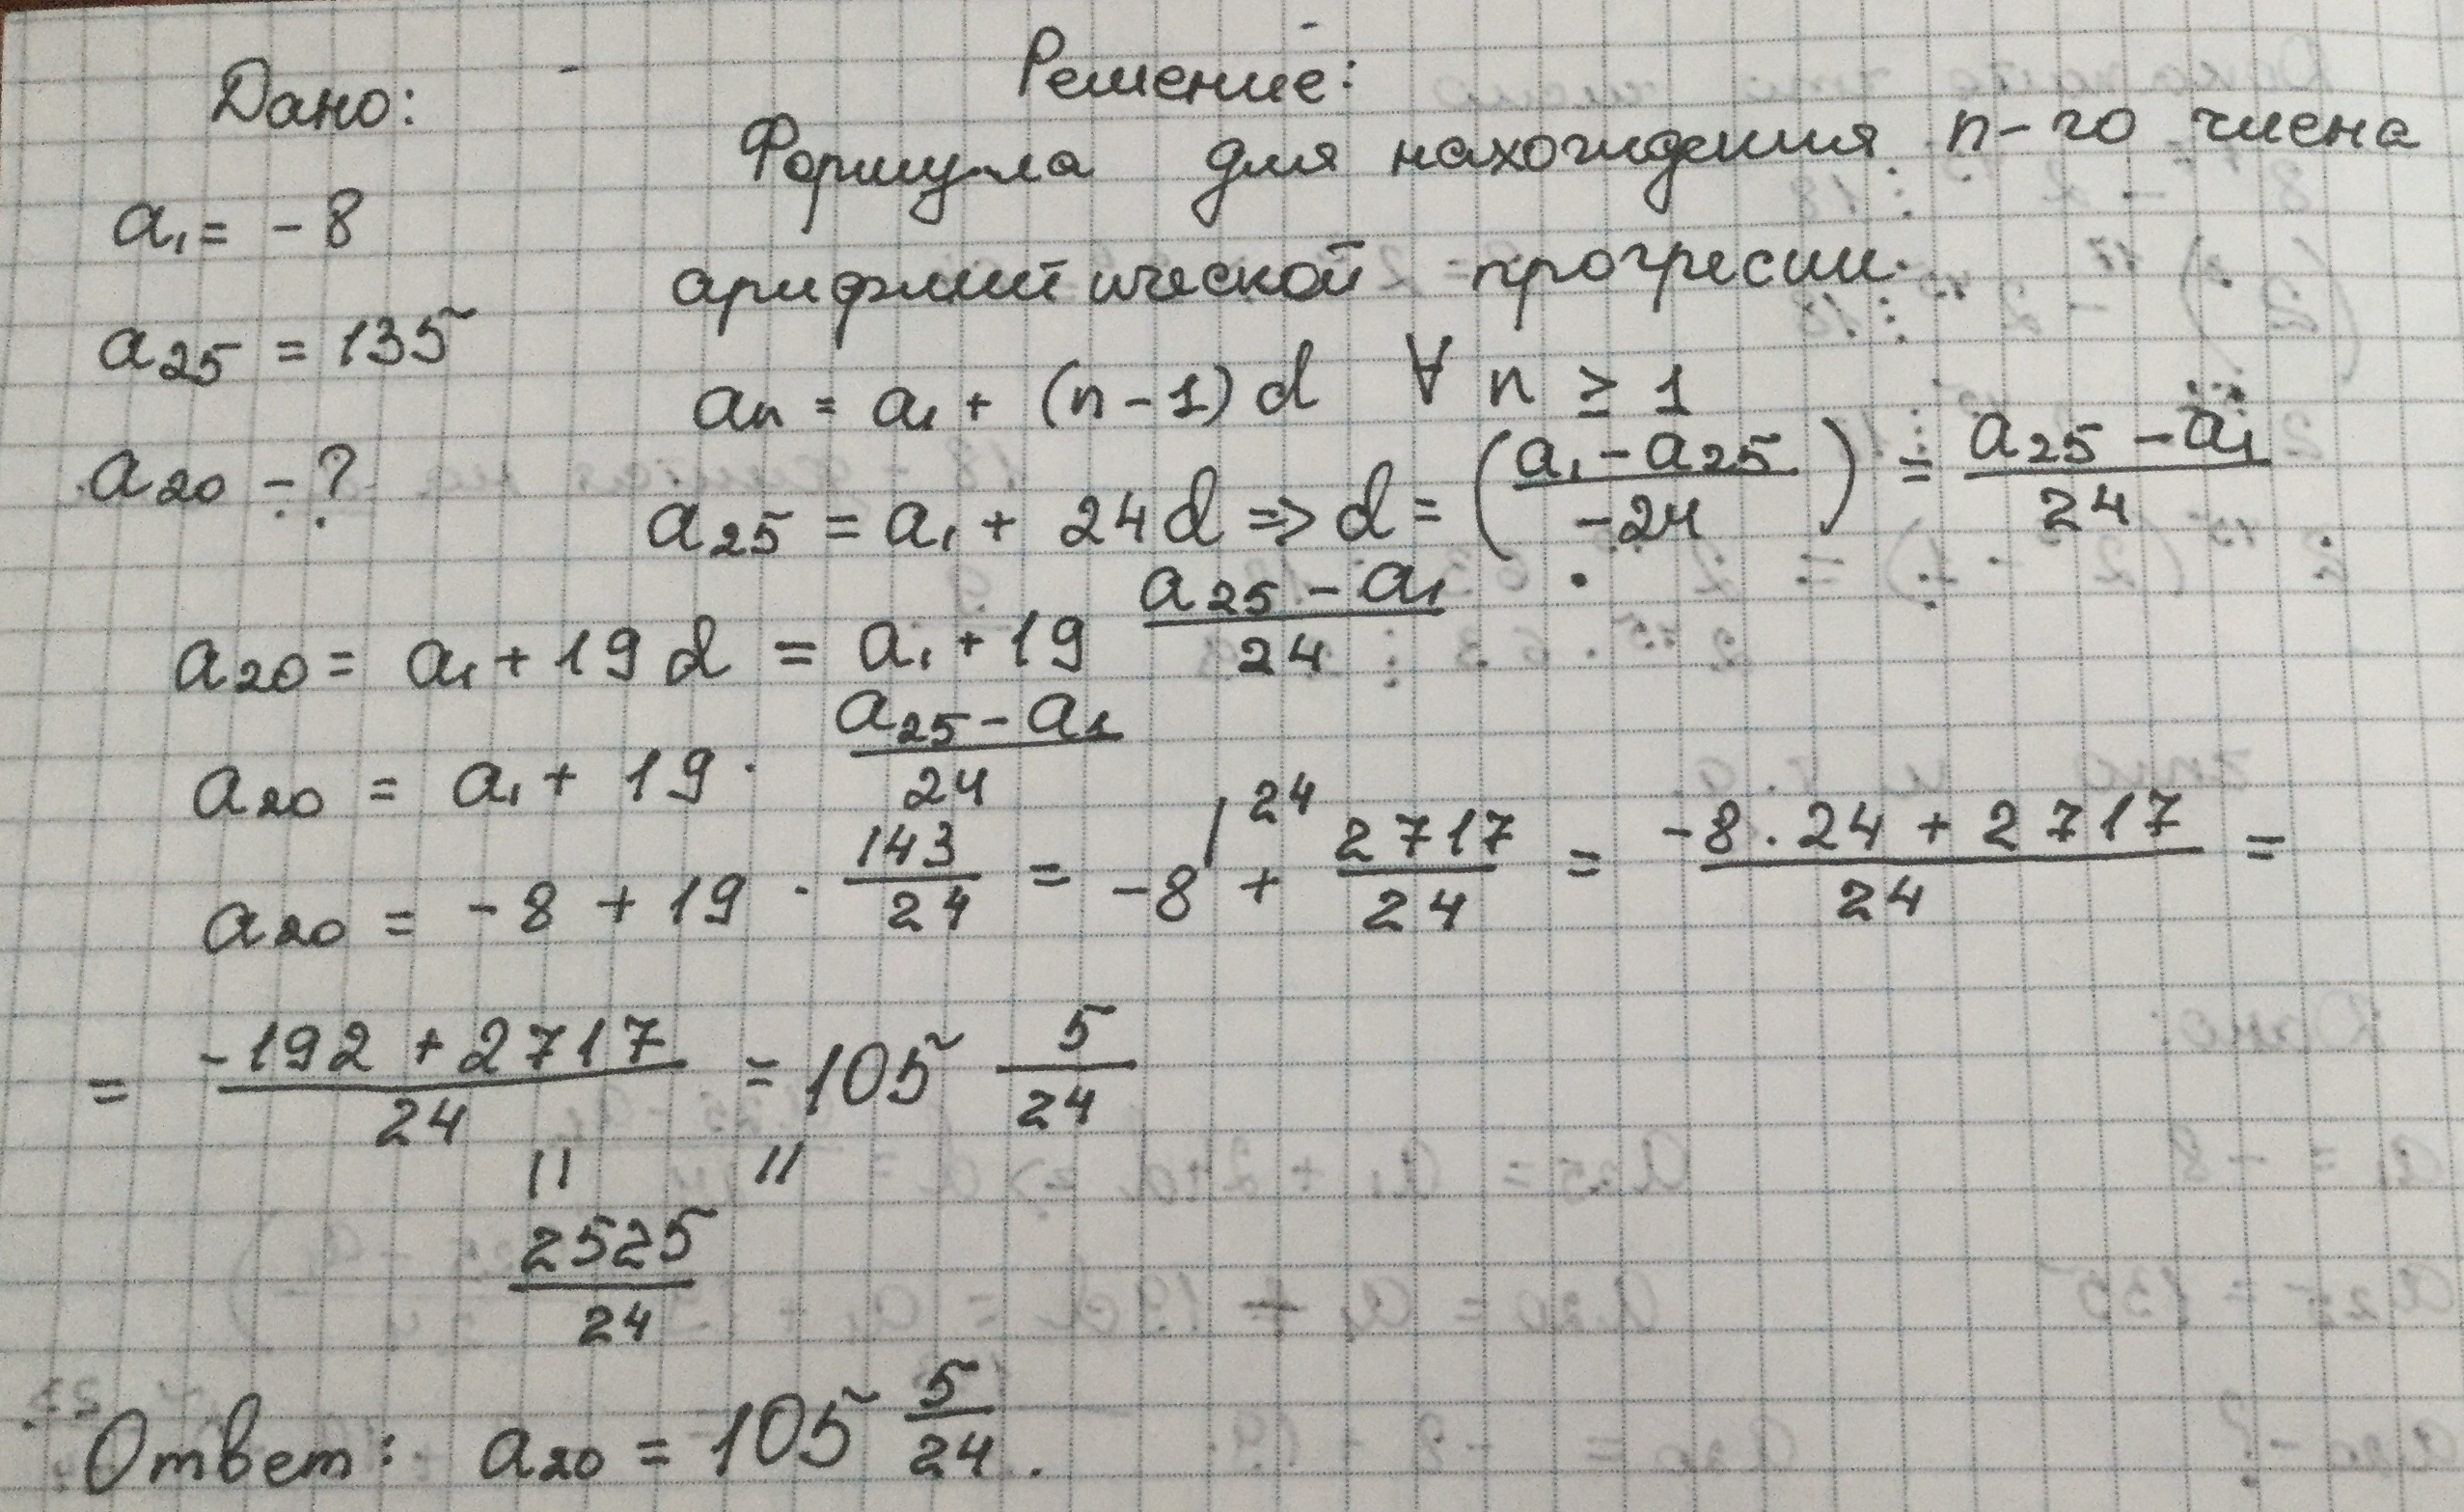 Дано:
Решение:
Формула для нахождения n-го члена
арифметической прогресии
a₁ = -8
a₂₅ = 135
a₂₀ - ?
aₙ = a₁ + (n-1)d ∀ n ≥ 1
a₂₅ = a₁ + 24d => d = ((a₁ - a₂₅)/(-24)) = (a₂₅ - a₁)/24
a₂₀ = a₁ + 19d = a₁ + 19 (a₂₅ - a₁)/24
a₂₀ = a₁ + 19 · (a₂₅ - a₁)/24
a₂₀ = -8 + 19 · 143/24 = -8 /24 + 2717/24 = (-8 · 24 + 2717)/24 =
= (-192 + 2717)/24 = 105 5/24
|| ||
2525/24
Ответ: a₂₀ = 105 5/24.